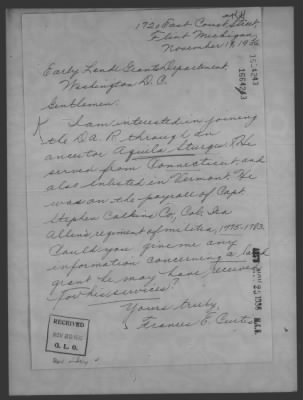 1720 East Court Street
Flint Michigan
November 19, 1936
Early Land Grants Department
Washington D. C.
Gentlemen:
I am interested in joining
the D. A. R. through an
ancestor Aquila Sturges. He
served from Connecticut and
also enlisted in Vermont. He
was on the payroll of Capt
Stephen Calkins Co., Col. Ira
Allen's, regiment of militia, 1775-1783.
Could you give me any
information concerning a land
grant he may have received
for his services?
Yours truly,
Frances E Curtis
RECEIVED
G. L. O.
1664243
1664243